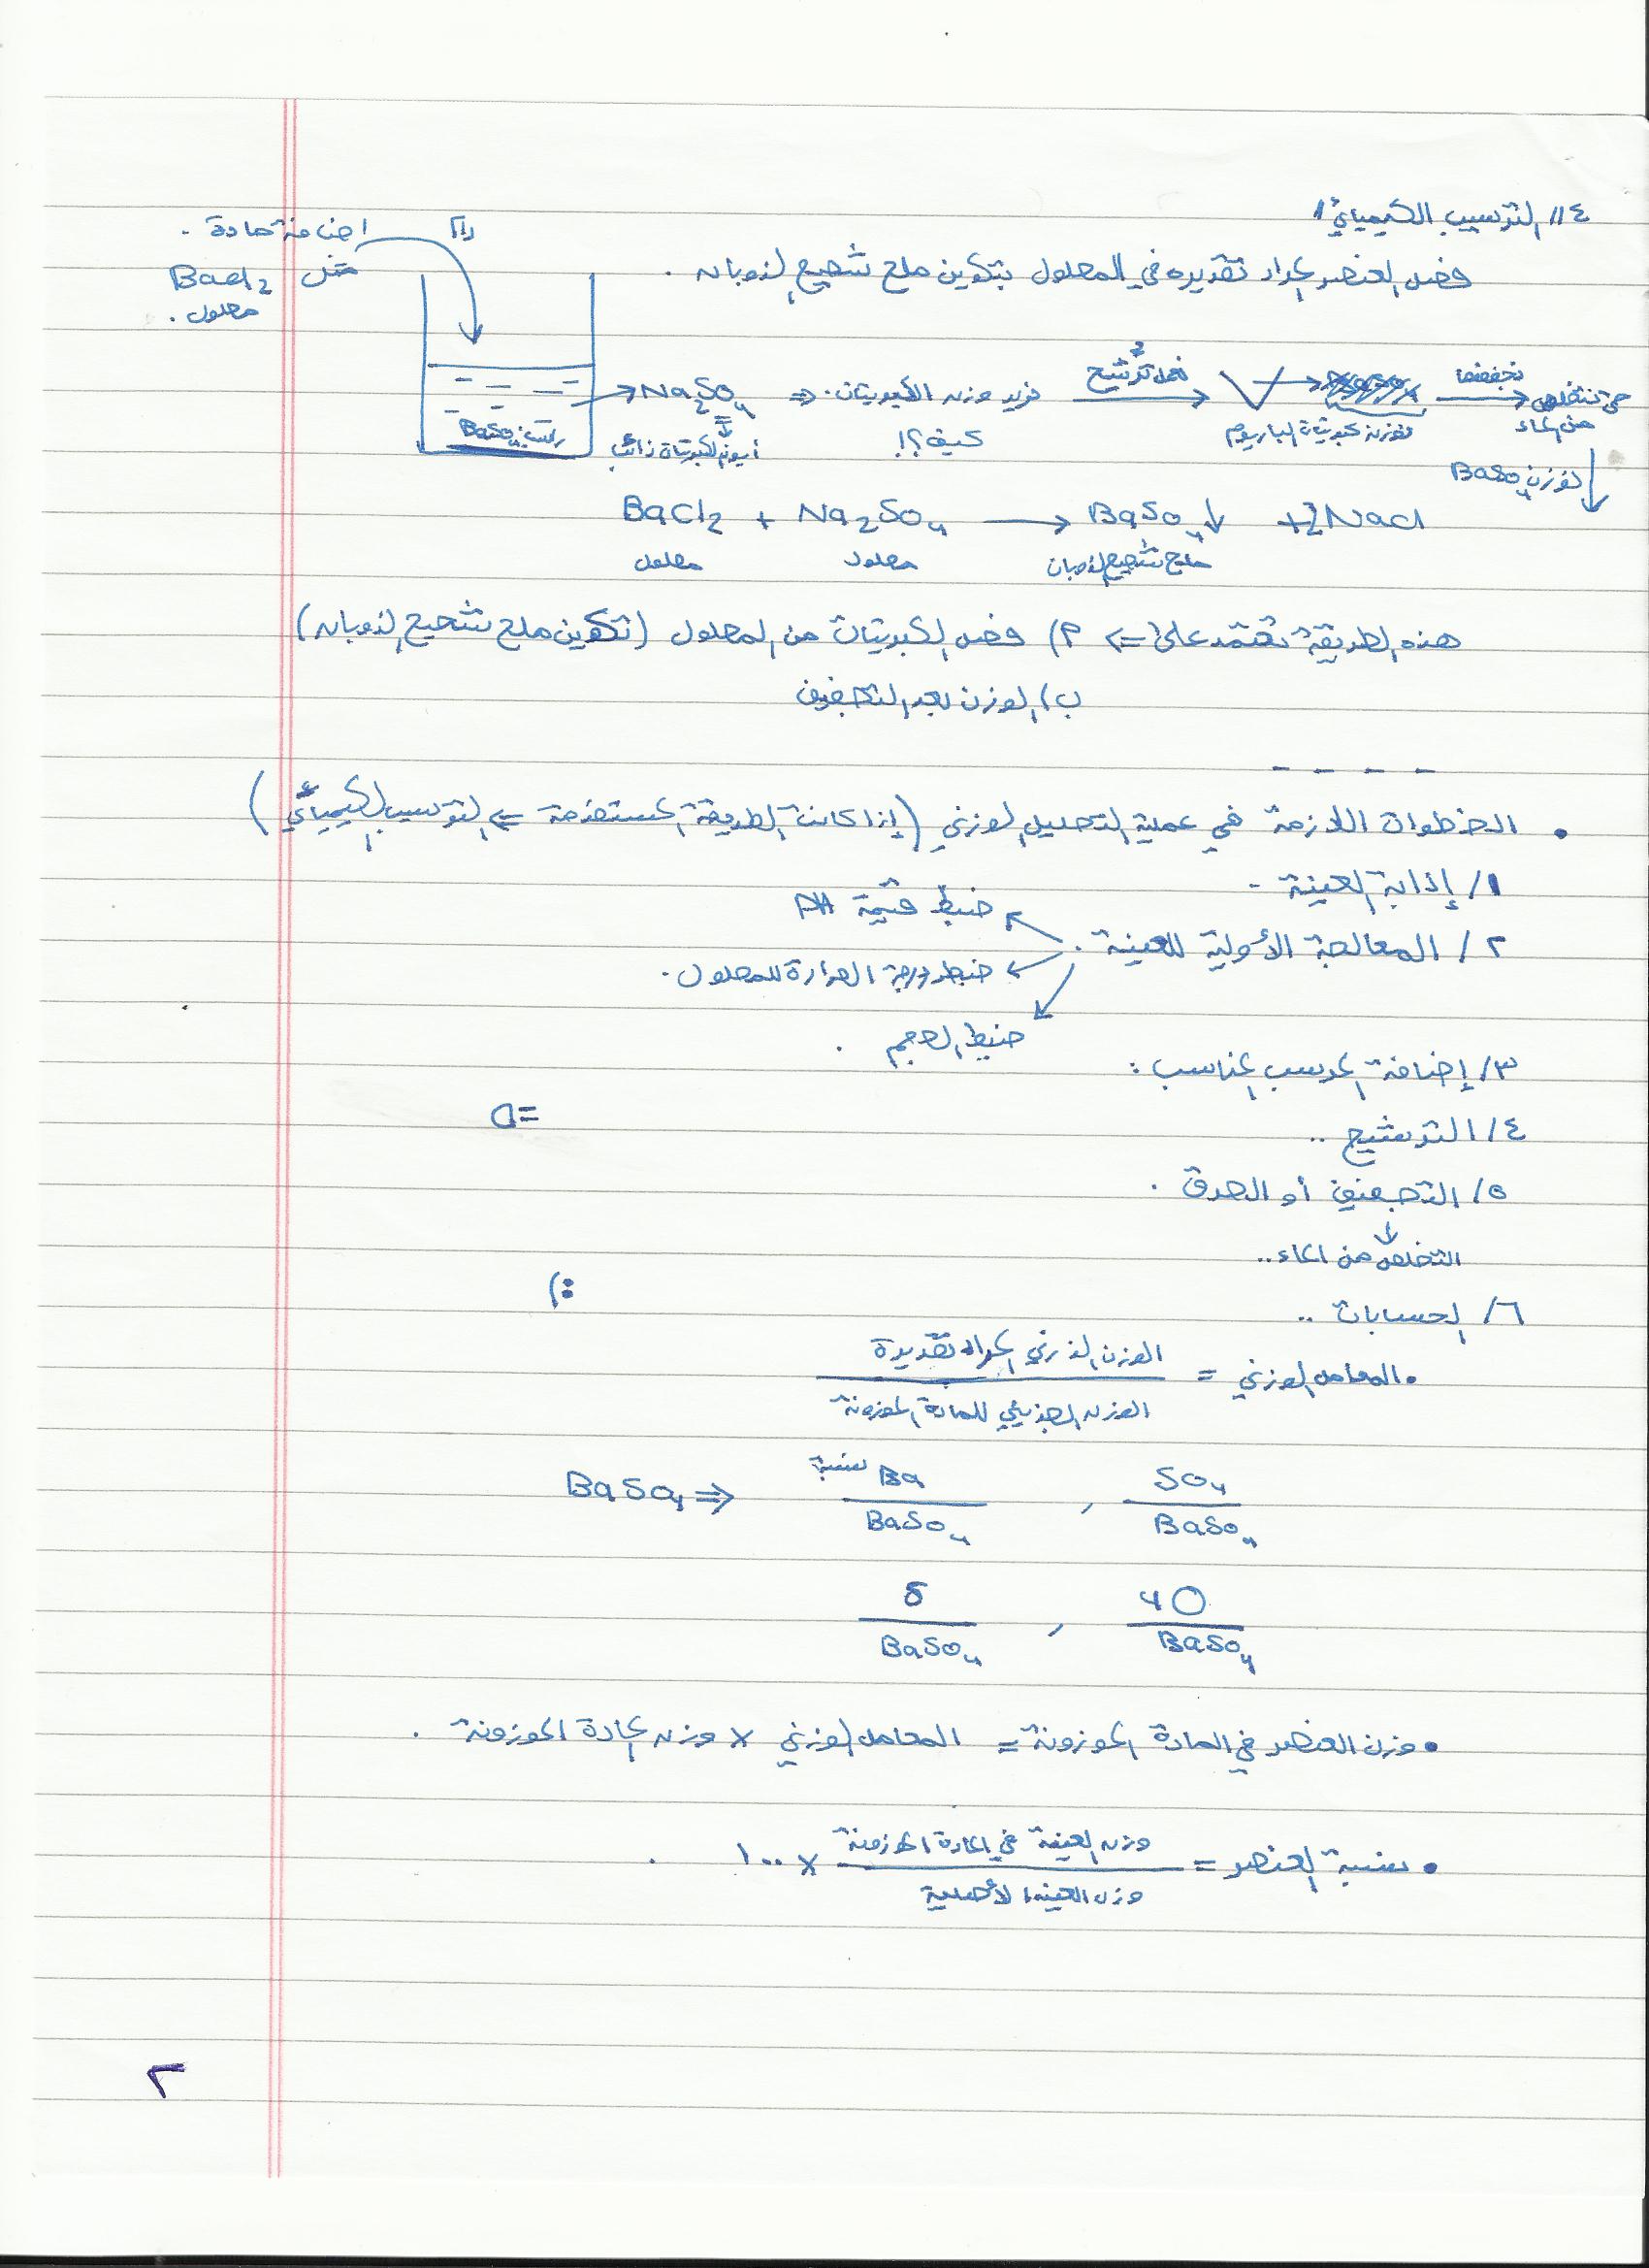 ٤// الترسيب الكيميائي/
فصل العنصر المراد تقديره في المحلول بتكوين ملح شحيح الذوبان .
(١) اضافة مادة .
مثل BaCl2
محلول .
Na2SO4 ⇒ نريد وزن الكبريتات . نعمل ترشيح نجففها حتى نتخلص من الماء
راسب BaSO4
أيون الكبريتات ذائب
كيف؟!
نوزن كبريتات الباريوم
نوزن BaSO4
BaCl2 + Na2SO4 → BaSO4↓ + 2NaCl
محلول محلول ملح شحيح الذوبان
هذه الطريقة تعتمد على ⇐ أ) فصل الكبريتات من المحلول (تكوين ملح شحيح الذوبان)
ب) الوزن بعد التجفيف
- - - -
• الخطوات اللازمة في عملية التحليل الوزني (إذا كانت الطريقة المستخدمة ⇐ الترسيب الكيميائي)
١/ إذابة العينة .
ضبط قيمة PH
٢/ المعالجة الأولية للعينة .
ضبط درجة الحرارة للمحلول .
ضبط الحجم .
٣/ إضافة المرسب المناسب :
=D
٤/ الترشيح ..
٥/ التجفيف أو الحرق .
↓
التخلص من الماء ..
:)
٦/ الحسابات ..
• المعامل الوزني = الوزن الذري المراد تقديرة
الوزن الجزيئي للمادة الموزونة
BaSO4 ⇒ نسبة Ba , SO4
BaSO4 BaSO4
S , 4O
BaSO4 BaSO4
• وزن العنصر في المادة الموزونة = المعامل الوزني × وزن المادة الموزونة .
• نسبة العنصر = وزن العينة في المادة الموزونة × ١٠٠ .
وزن العينة الأصلية
٢